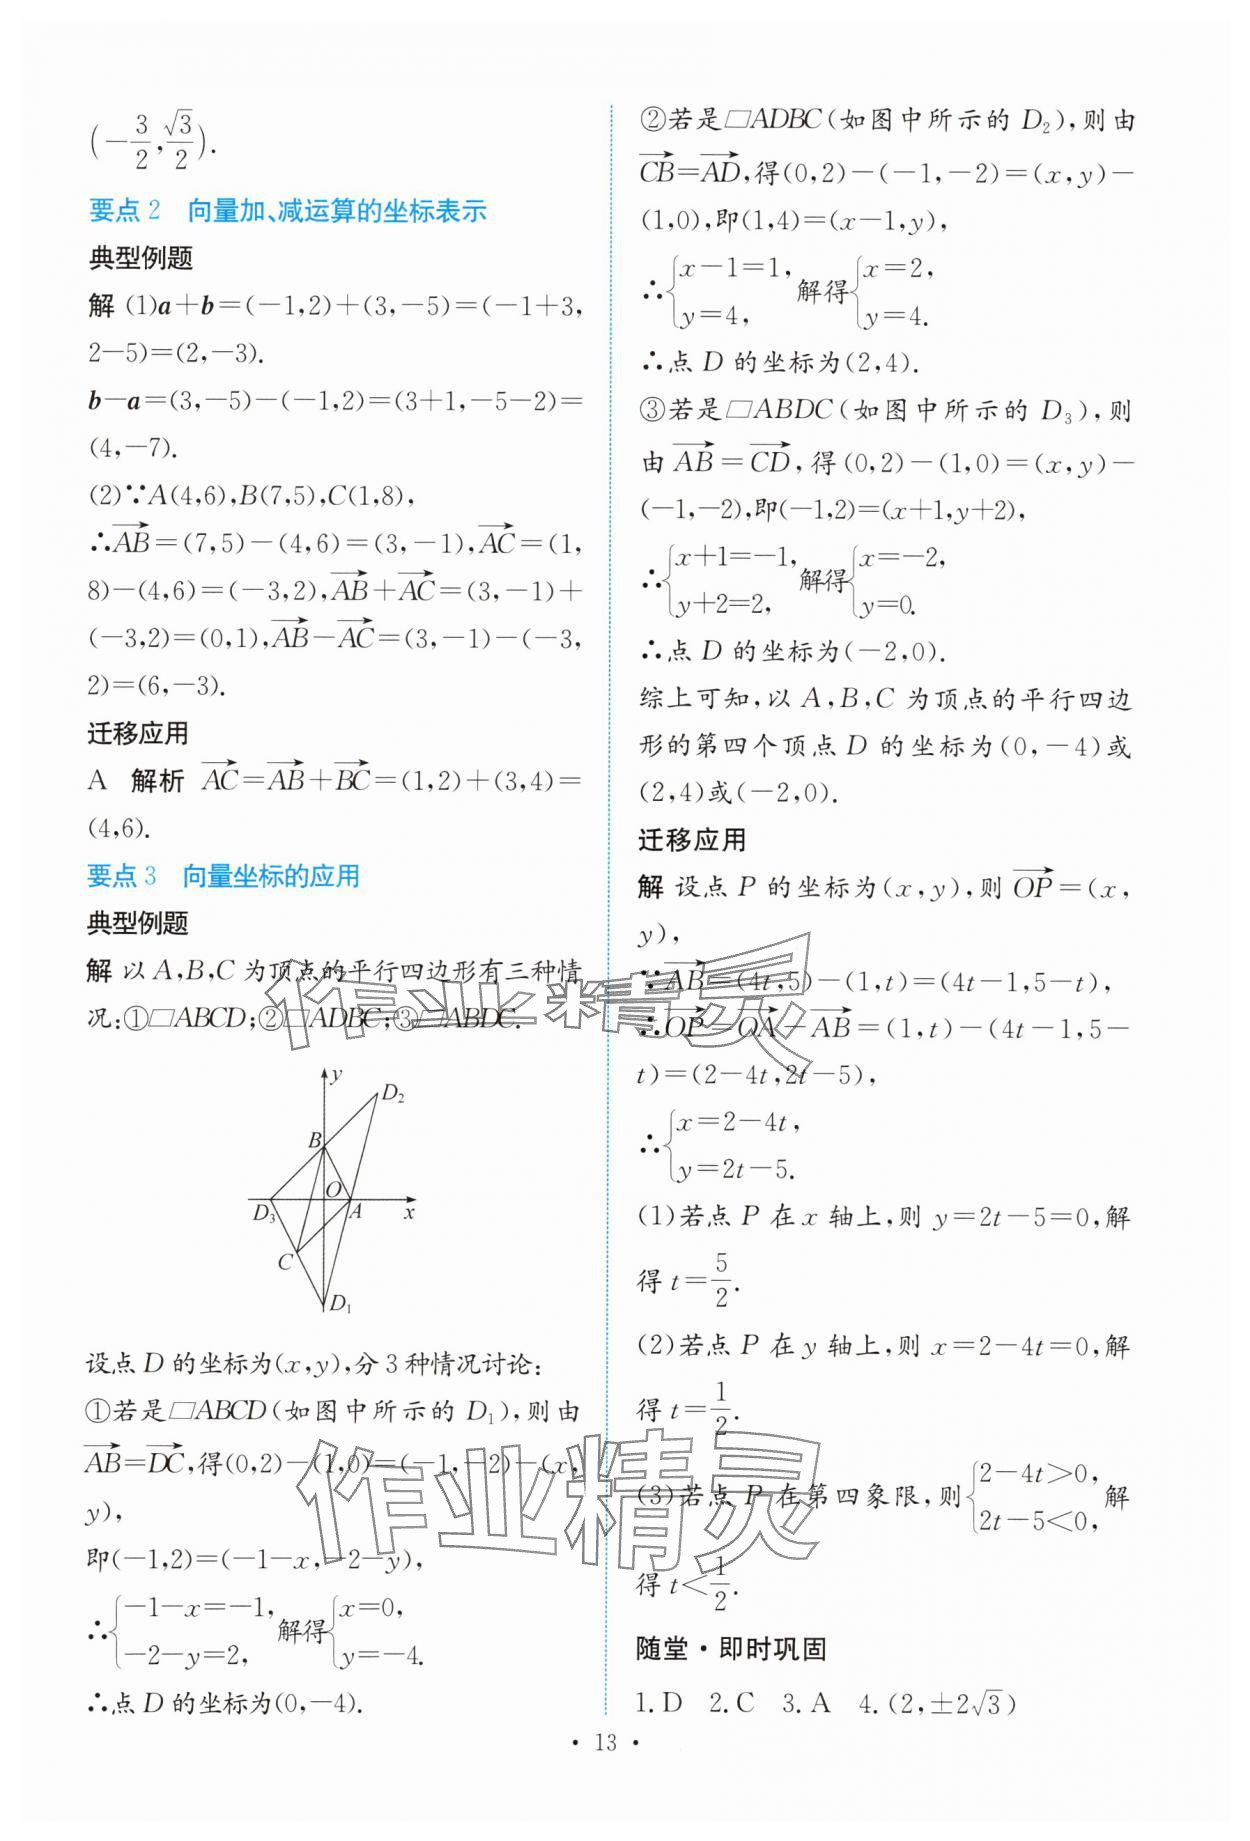 (-3/2, √3/2).
要点2 向量加、减运算的坐标表示
典型例题
解 (1)a+b=(-1,2)+(3,-5)=(-1+3,
2-5)=(2,-3).
b-a=(3,-5)-(-1,2)=(3+1,-5-2)=
(4,-7).
(2)∵A(4,6),B(7,5),C(1,8),
∴AB→=(7,5)-(4,6)=(3,-1),AC→=(1,
8)-(4,6)=(-3,2),AB→+AC→=(3,-1)+
(-3,2)=(0,1),AB→-AC→=(3,-1)-(-3,
2)=(6,-3).
迁移应用
A 解析 AC→=AB→+BC→=(1,2)+(3,4)=
(4,6).
要点3 向量坐标的应用
典型例题
解 以A,B,C为顶点的平行四边形有三种情
况:①▱ABCD;②▱ADBC;③▱ABDC.
y
D₂
B
O
D₃
A
x
C
D₁
设点D的坐标为(x,y),分3种情况讨论:
①若是▱ABCD(如图中所示的D₁),则由
AB→=DC→,得(0,2)-(1,0)=(-1,-2)-(x,
y),
即(-1,2)=(-1-x,-2-y),
∴{-1-x=-1, -2-y=2, 解得{x=0, y=-4.
∴点D的坐标为(0,-4).
②若是▱ADBC(如图中所示的D₂),则由
CB→=AD→,得(0,2)-(-1,-2)=(x,y)-
(1,0),即(1,4)=(x-1,y),
∴{x-1=1, y=4, 解得{x=2, y=4.
∴点D的坐标为(2,4).
③若是▱ABDC(如图中所示的D₃),则
由AB→=CD→,得(0,2)-(1,0)=(x,y)-
(-1,-2),即(-1,2)=(x+1,y+2),
∴{x+1=-1, y+2=2, 解得{x=-2, y=0.
∴点D的坐标为(-2,0).
综上可知,以A,B,C为顶点的平行四边
形的第四个顶点D的坐标为(0,-4)或
(2,4)或(-2,0).
迁移应用
解 设点P的坐标为(x,y),则OP→=(x,
y),
∵AB→=(4t,5)-(1,t)=(4t-1,5-t),
∴OP→=OA→-AB→=(1,t)-(4t-1,5-
t)=(2-4t,2t-5),
∴{x=2-4t, y=2t-5.
(1)若点P在x轴上,则y=2t-5=0,解
得t=5/2.
(2)若点P在y轴上,则x=2-4t=0,解
得t=1/2.
(3)若点P在第四象限,则{2-4t>0, 2t-5<0, 解
得t<1/2.
随堂·即时巩固
1.D 2.C 3.A 4.(2,±2√3)
·13·
作业精灵
作业精灵